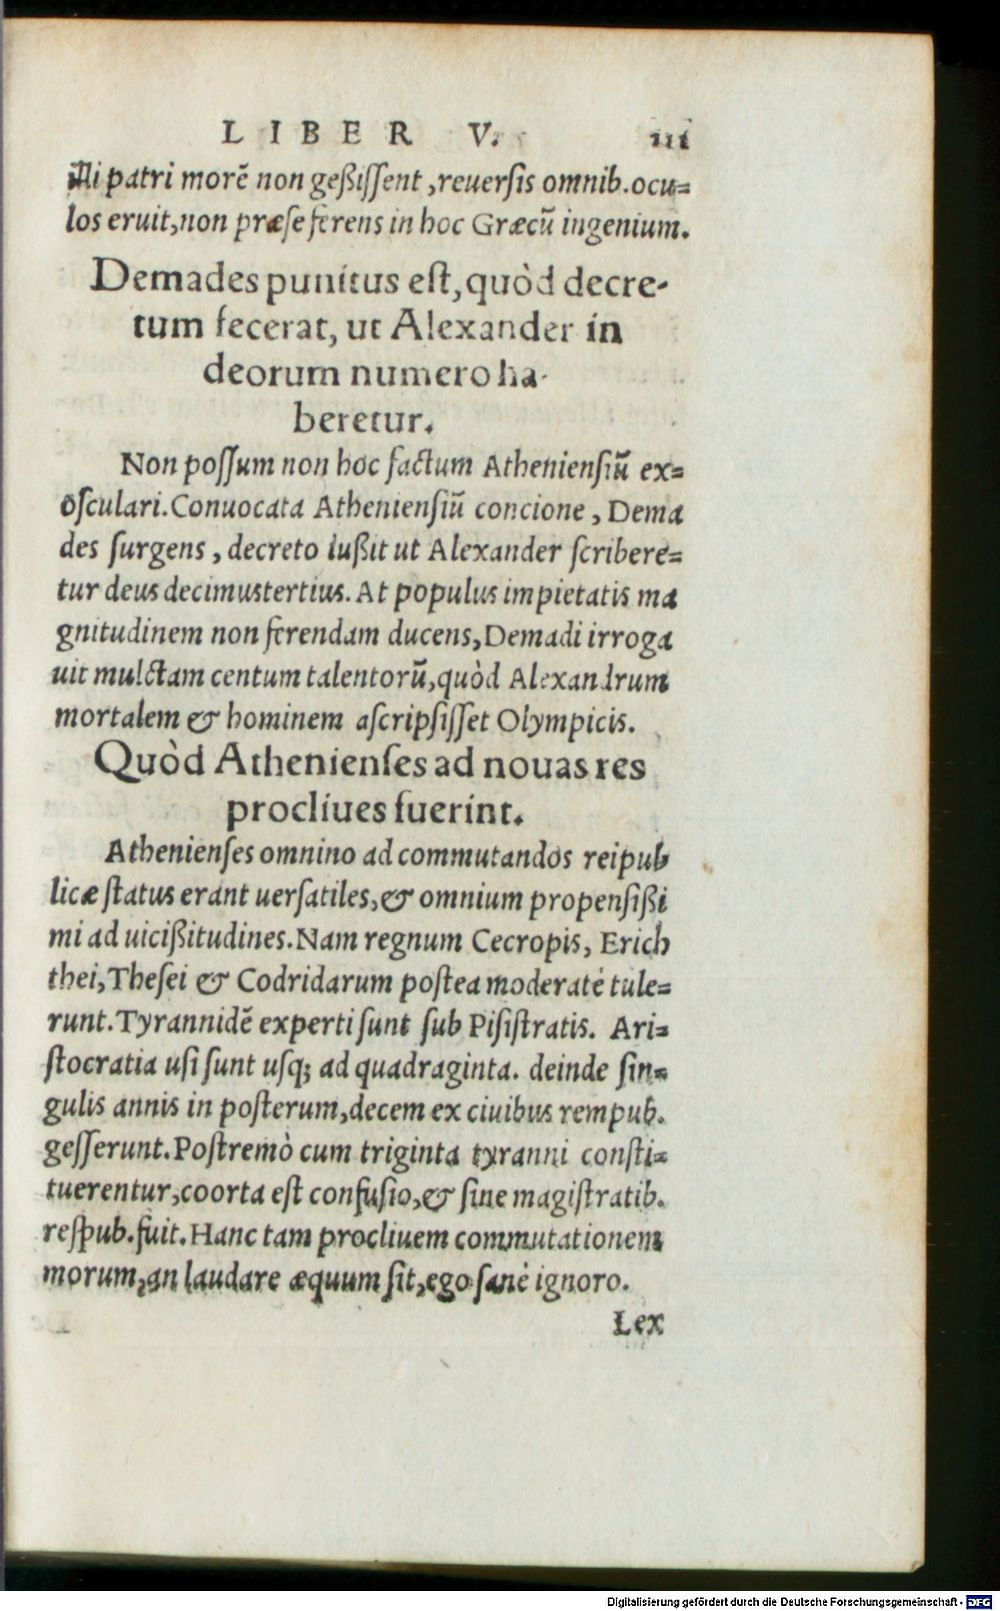 LIBER V. 111
illi patri morẽ non geßiſſent, reuerſis omnib. ocu=
los eruit, non præ ſe ferens in hoc Græcũ ingenium.
Demades punitus eſt, quòd decre-
tum fecerat, ut Alexander in
deorum numero ha-
beretur.
Non poſſum non hoc factum Athenienſiũ ex=
oſculari. Conuocata Athenienſiũ concione, Dema
des ſurgens, decreto iußit ut Alexander ſcribere=
tur deus decimustertius. At populus impietatis ma
gnitudinem non ferendam ducens, Demadi irroga
uit mulctam centum talentorũ, quòd Alexandrum
mortalem & hominem aſcripſiſſet Olympicis.
Quòd Athenienſes ad nouas res
procliues fuerint.
Athenienſes omnino ad commutandos reipub
licæ ſtatus erant uerſatiles, & omnium propenſißi
mi ad uicißitudines. Nam regnum Cecropis, Erich
thei, Theſei & Codridarum poſtea moderatè tule=
runt. Tyrannidẽ experti ſunt ſub Piſiſtratis. Ari=
ſtocratia uſi ſunt uſq; ad quadraginta. deinde ſin=
gulis annis in poſterum, decem ex ciuibus rempub.
geſſerunt. Poſtremò cum triginta tyranni conſti=
tuerentur, coorta eſt confuſio, & ſine magiſtratib.
reſpub. fuit. Hanc tam procliuem commutationem
morum, an laudare æquum ſit, ego ſanè ignoro.
Lex
Digitalisierung gefördert durch die Deutsche Forschungsgemeinschaft - DFG